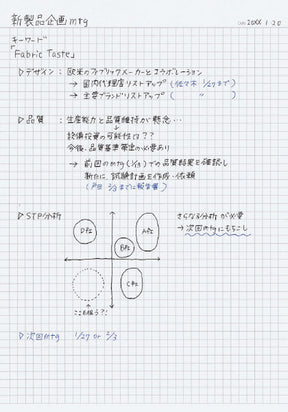 新製品企画mtg
DATE 20XX 1.20
キーワード
「Fabric Taste」
▷デザイン: 欧米のファブリックメーカーとコラボレーション
→ 国内代理店リストアップ (佐々木 1/27まで)
→ 主要ブランドリストアップ ( 〃 )
▷品質: 生産能力と品質維持が懸念…
↓
設備投資の可能性は??
今後、品質基準策定の必要あり
→ 前回のmtg(1/13)での品質結果を確認し
新たに、試験計画を作成・依頼
▷STP分析
さらなる分析が必要
→次回のmtgにもちこし
D社
A社
B社
C社
ここを狙う?!
▷次回mtg 1/27 or 2/3